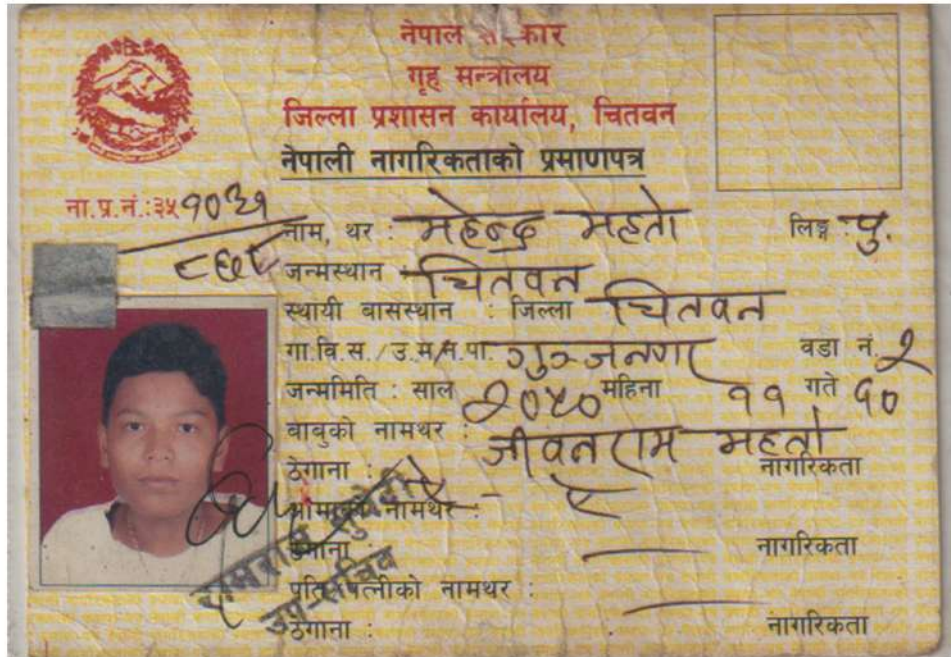 नेपाल सरकार
गृह मन्त्रालय
जिल्ला प्रशासन कार्यालय, चितवन
नेपाली नागरिकताको प्रमाणपत्र
ना.प्र.नं.:३५१०३१
नाम, थर : महेन्द्र महतो लिङ्ग : पु.
जन्मस्थान चितवन
स्थायी बासस्थान : जिल्ला चितवन
गा.वि.स./उ.म/न.पा. गुञ्जनगर वडा नं. २
जन्ममिति : साल २०५० महिना ११ गते १०
बाबुको नामथर : जीवतराम महतो
ठेगाना : ऐ नागरिकता
आमाको नामथर :
ठेगाना : नागरिकता
पति/पत्नीको नामथर :
ठेगाना : नागरिकता
उप-सचिव